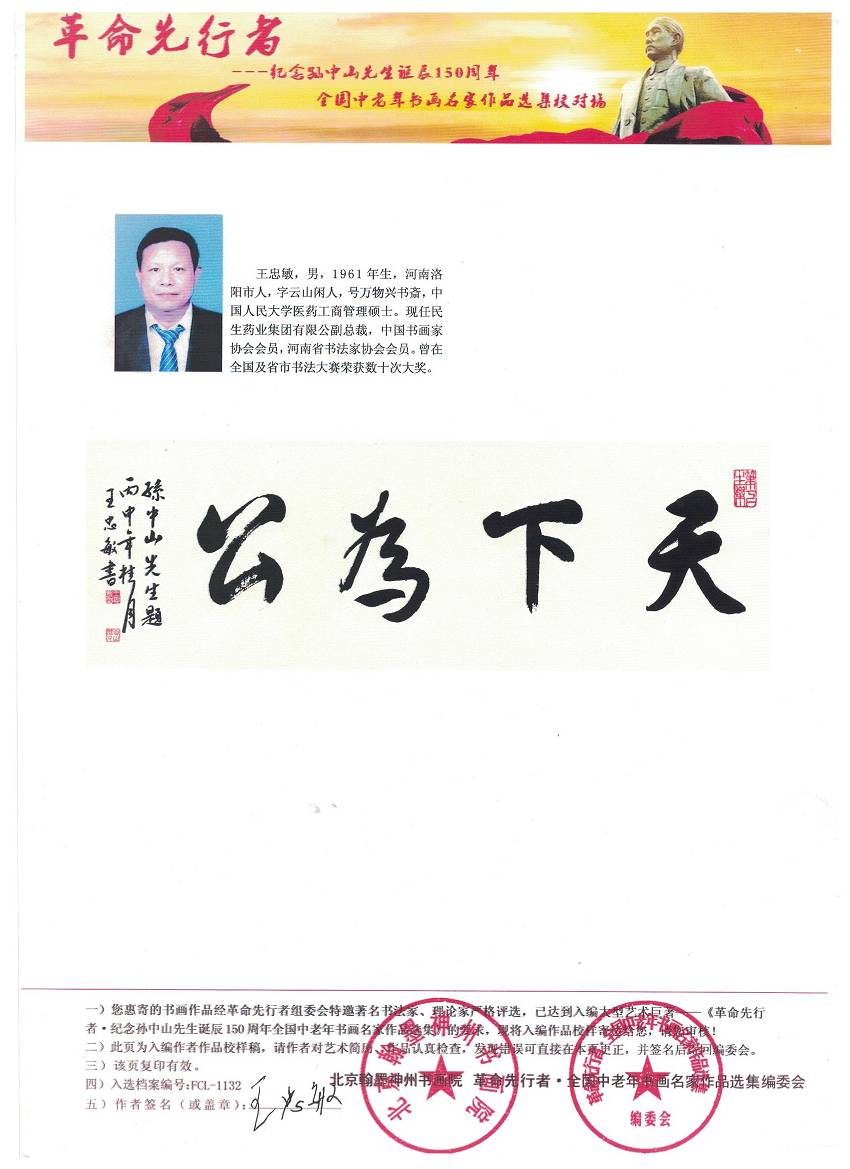 革命先行者
---纪念孙中山先生诞辰150周年
全国中老年书画名家作品选集校对稿
王忠敏，男，1961 年生，河南洛
阳市人，字云山闲人，号万物兴书斋，中
国人民大学医药工商管理硕士。现任民
生药业集团有限公副总裁，中国书画家
协会会员，河南省书法家协会会员。曾在
全国及省市书法大赛荣获数十次大奖。
天下為公
孫中山先生題
丙申年桂月
王忠敏書
一）您惠寄的书画作品经革命先行者组委会特邀著名书法家、理论家严格评选，已达到入编大型艺术巨著——《革命先行
者·纪念孙中山先生诞辰 150 周年全国中老年书画名家作品选集》的要求，现将入编作品校样寄送给您，请您审核！
二）此页为入编作者作品校样稿，请作者对艺术简历、作品认真检查，发现错误可直接在本页更正，并签名后寄回编委会。
三）该页复印有效。
四）入选档案编号:FCL-1132
北京翰墨神州书画院 革命先行者·全国中老年书画名家作品选集编委会
五）作者签名（或盖章）：王忠敏
北京翰墨神州书画院
革命先行者·全国中老年书画名家作品选集
编委会